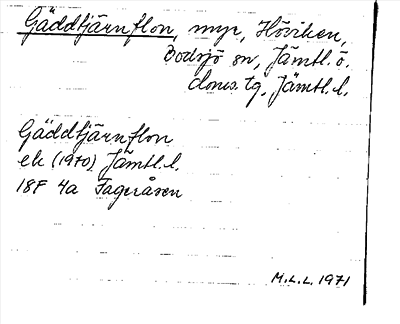 Gäddtjärnflon, myr, Höviken,
Bodsjö sn, Jämtl. ö.
doms. tg, Jämtl. l.
Gäddtjärnflon
ek (1970) Jämtl. l.
18F 4a Fageråsen
M.L.L. 1971